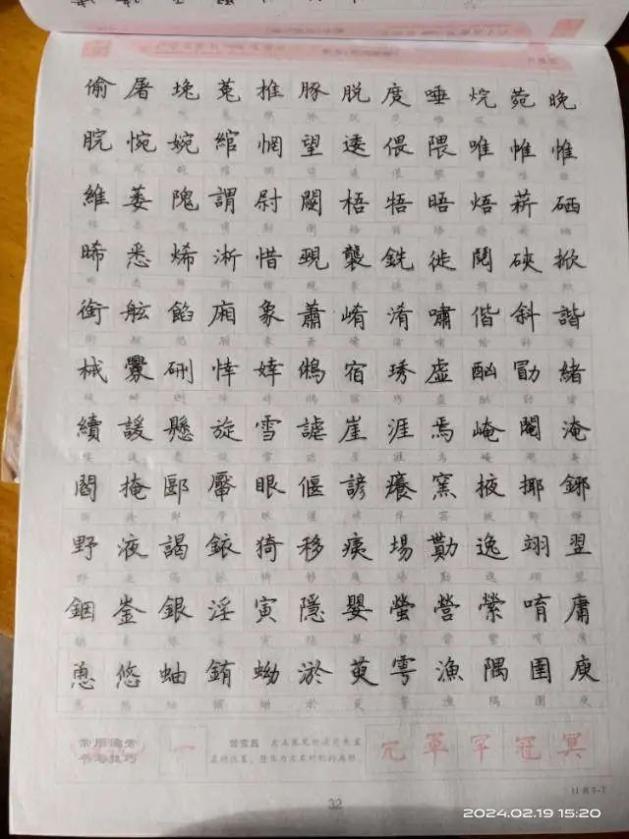 偷屠堍菟推豚脱度唾烷菀晚
脘惋婉綰惘望逶偎隈唯帷惟
維萎隗謂尉閿梧牾晤焐菥硒
晞悉烯淅惜覡襲銑徙鬩硤掀
銜舷餡廂象蕭崤淆嘯偕斜諧
械釁硎悻婞鵂宿琇虛酗勖緒
續諼懸旋雪謔崖涯焉崦閹淹
閻掩郾饜眼偃諺癢窯掖揶鋣
野液謁銥猗移痍場勩逸翊翌
銦崟銀淫寅隱嬰螢營縈唷庸
恿悠蚰銪蚴淤萸雩漁隅圉庾
常用漢字
书写技巧
一 秃宝盖
冗 軍 罕 冠 冥
32
11画5-7
2024.02.19 15:20